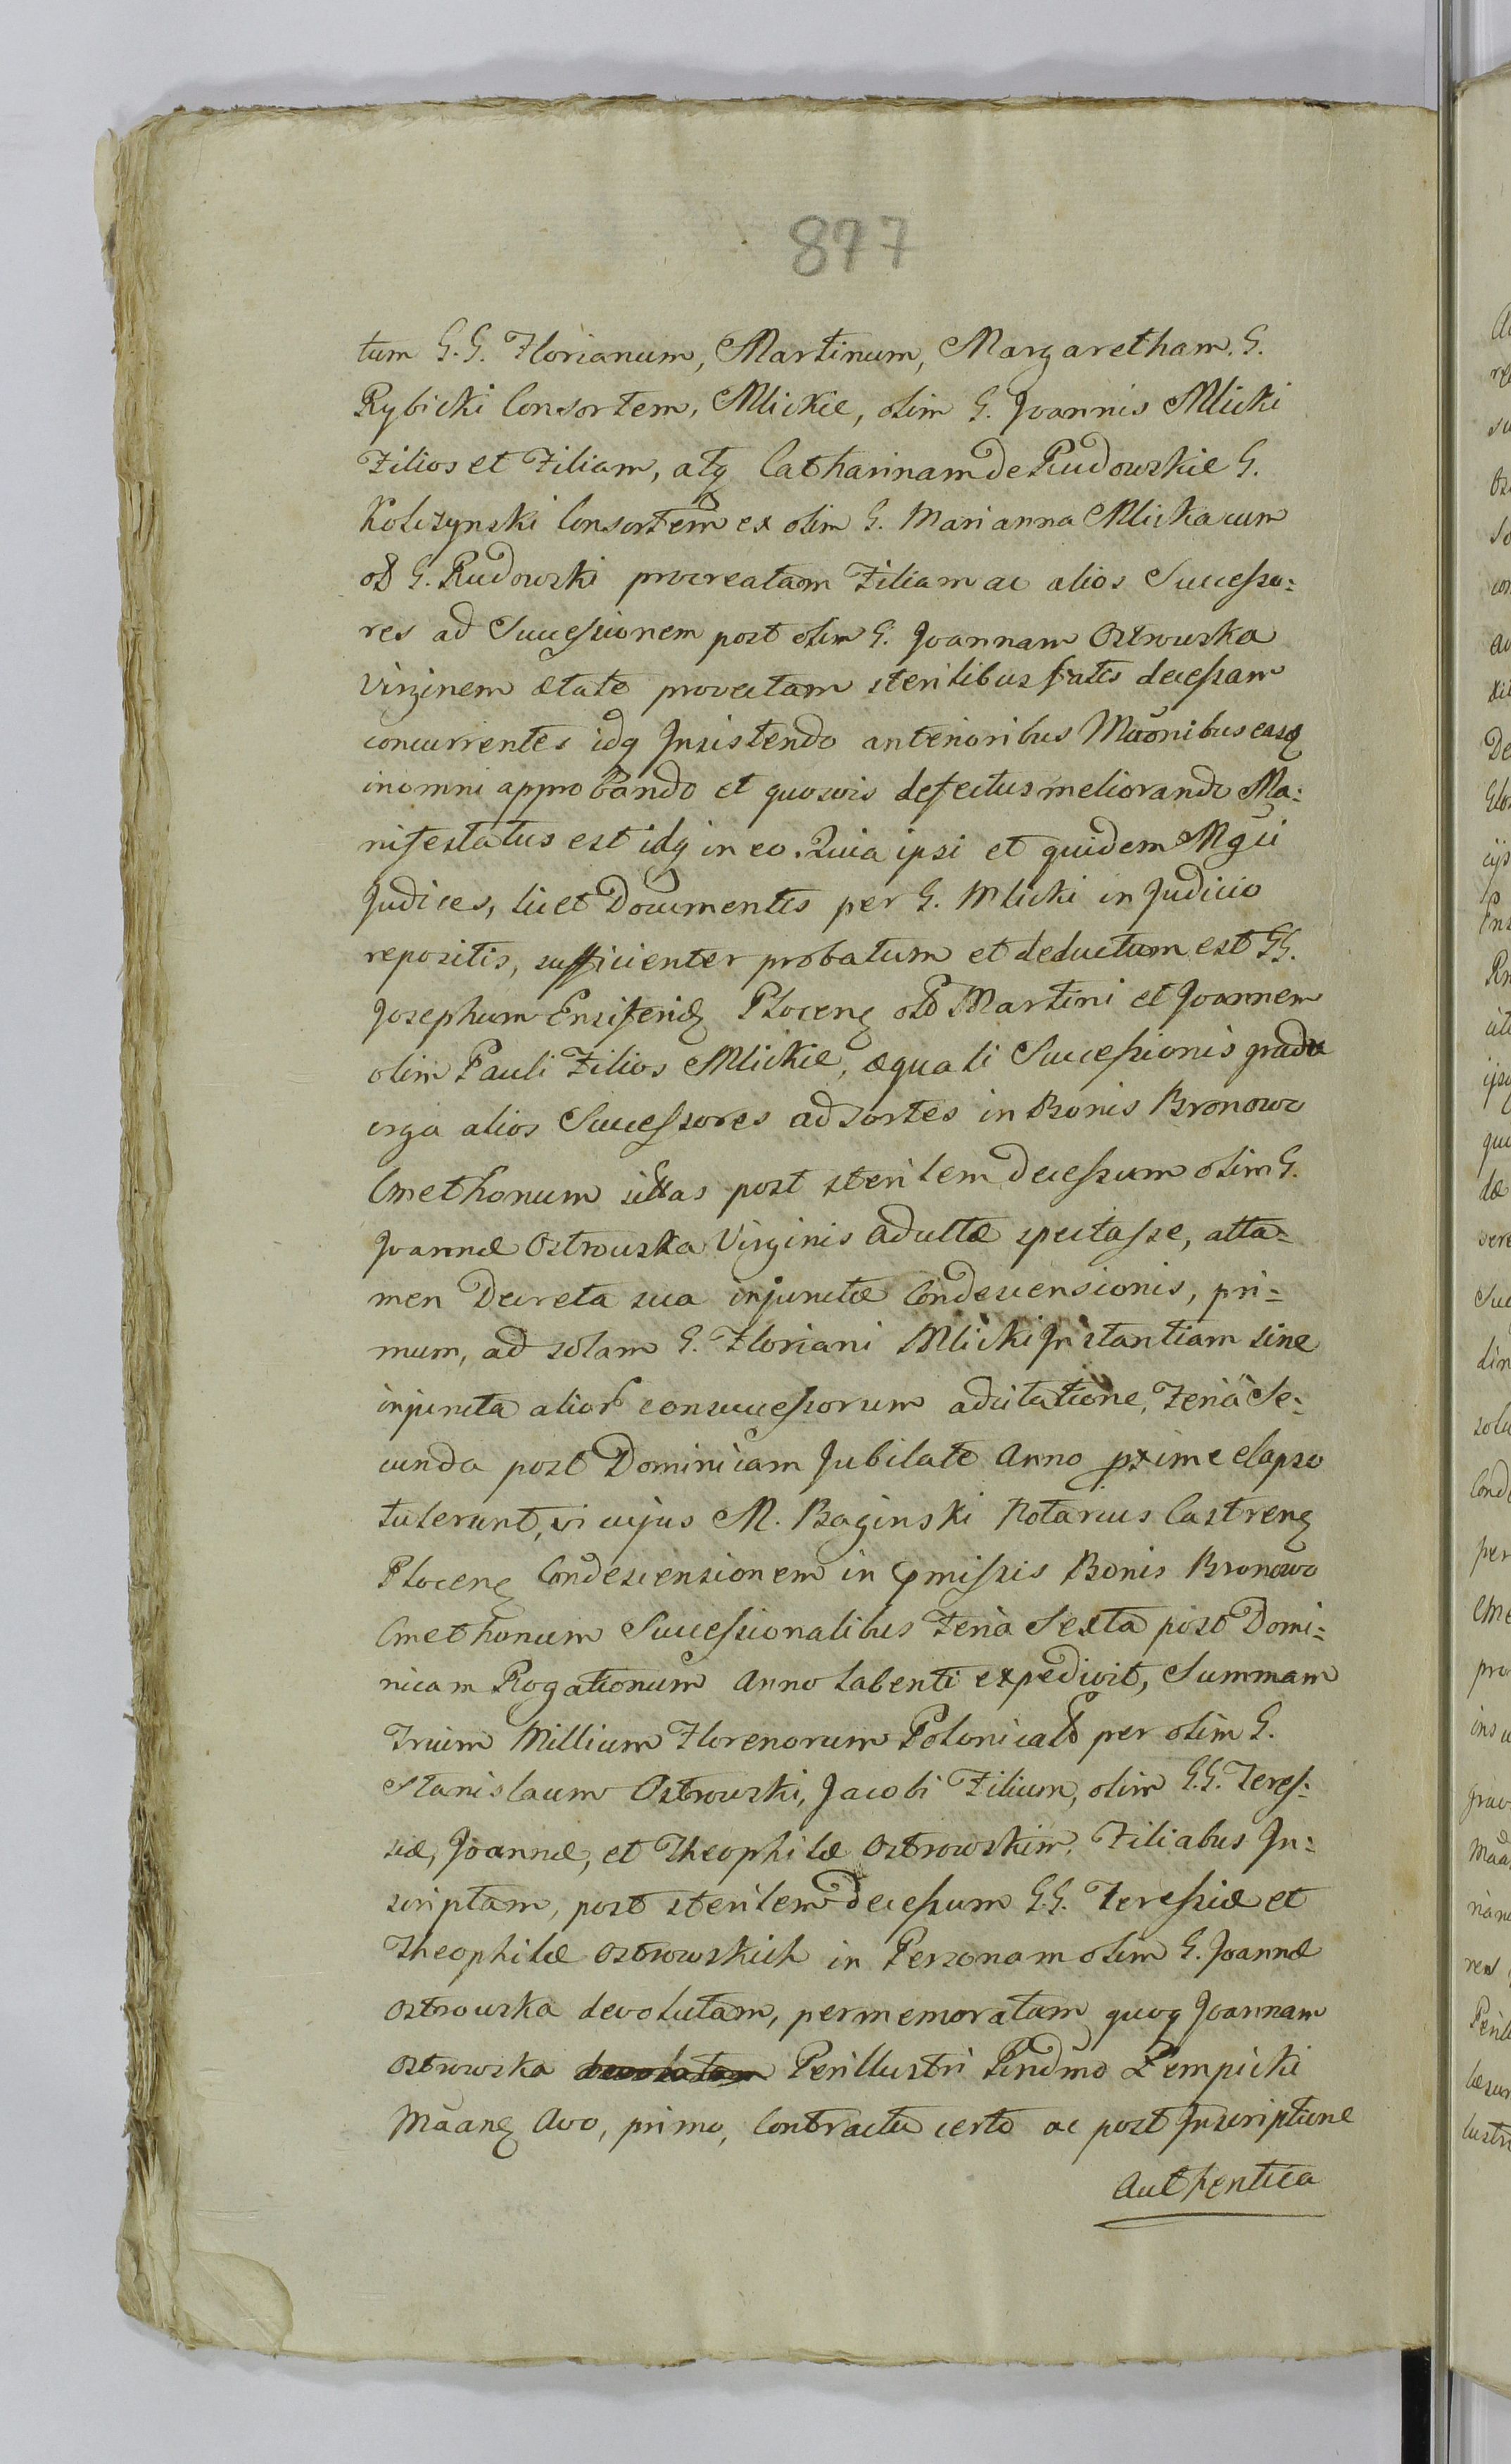 877
tum G.G. Florianum, Martinum, Margaretham. G.
Rybicki Consortem, Mlickie, olim G. Joannis Mlicki
Filios et Filiam, atq Catharinam de Rudowskie G.
Kolczynski Consortem ex olim G. Marianna Mlicka cum
ol G. Rudowski procreatam Filiam ac alios Successo:
res ad Successionem post olim G. Joannam Ostrowska
Virginem ætate provectam sterilibus fatis decessam
concurrentes idq Insistendo anterioribus Mãonibus easq
in omni approbando et quosvis defectus meliorando Ma:
nifestatus est idq in eo. Quia ipsi et quidem Mgci
Judices, licet Documentis per G. Mlicki in Judicio
repositis, sufficienter probatum et deductum est GG.
Josephum Ensiferid Plocens ol Martini et Joannem
olim Pauli Filios Mlickie, æquali Successionis gradu
erga alios Successores ad sortes in Bonis Bronowo
Cmethonum sittas post sterilem decessum olim G.
Joannæ Ostrowska Virginis adultæ spectasse, atta=
men Decreta sua injunctæ Condescensionis, pri=
mum, ad solam G. Floriani Mlicki Instantiam sine
injuncta alior consuccessorum adcitatione, Feria Se:
cunda post Dominicam Jubilate Anno pxime elapso
tulerunt, vi cujus M. Baginski Notarius Castrens
Plocens Condescensionem in pmissis Bonis Bronowo
Cmethonum Successionalibus Feria Sexta post Domi:
nicam Rogationum Anno labenti expedivit, Summam
Trium Millium Florenorum Polonical per olim G.
Stanislaum Ostrowski, Jacobi Filium, olim G.G. Teres:
siæ, Joannæ, et Theophilæ Ostrowskim. Filiabus In:
scriptam, post sterilem decessum G.G. Teressiæ et
Theophilæ Ostrowskich in Personam olim G. Joannæ
Ostrowska devolutam, per memoratam quoq Joannam
Ostrowska devolutam Perillustri Rndmo Lempicki
Mãane Avo, primo, Contractu certo ac post Inscriptione
Authentica